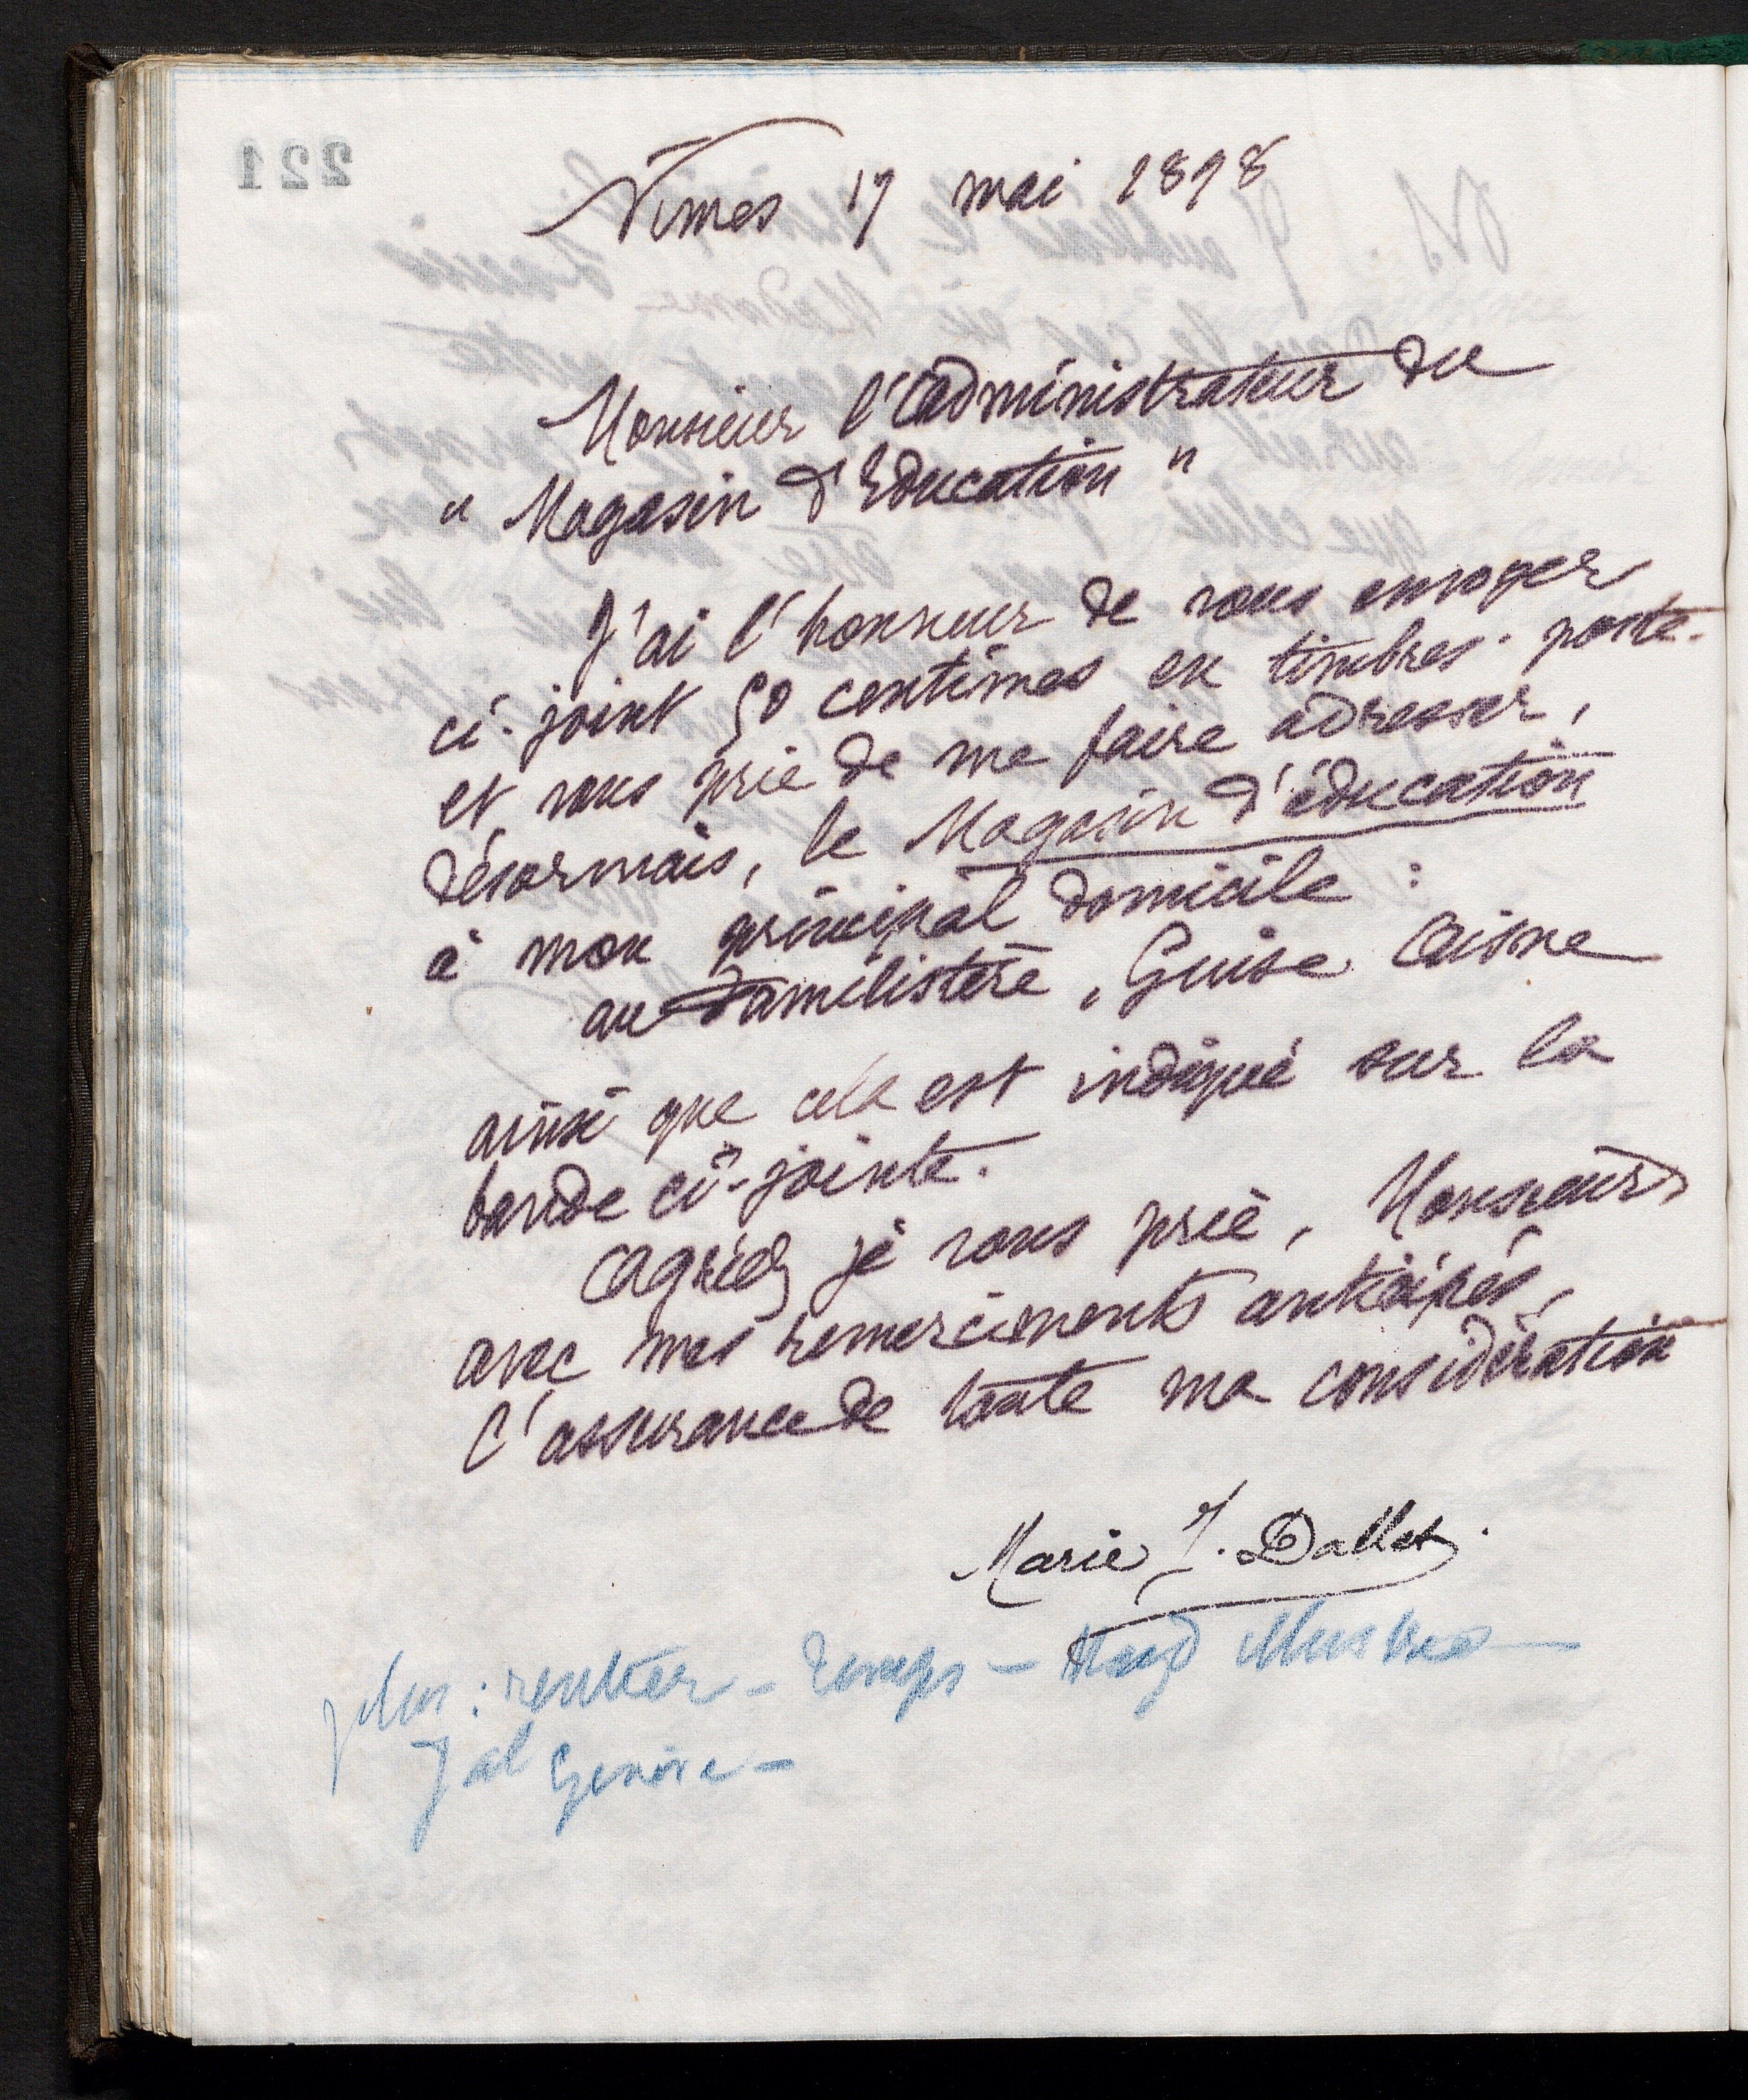 221
Nîmes 17 mai 1898
Monsieur l'administrateur du
" Magasin d'Education "
J'ai l'honneur de vous envoyer
ci-joint 50 centimes en timbres-poste.
et vous prie de me faire adresser,
désormais, le Magasin d'éducation
à mon principal domicile :
au Familistère, Guise Aisne
ainsi que cela est indiqué sur la
bande ci-jointe.
Agréez je vous prie, Monsieur,
avec mes remerciements anticipés,
l'assurance de toute ma considération
Marie J. Dallet.
plus : rentier - Temps -
Jal Genève -